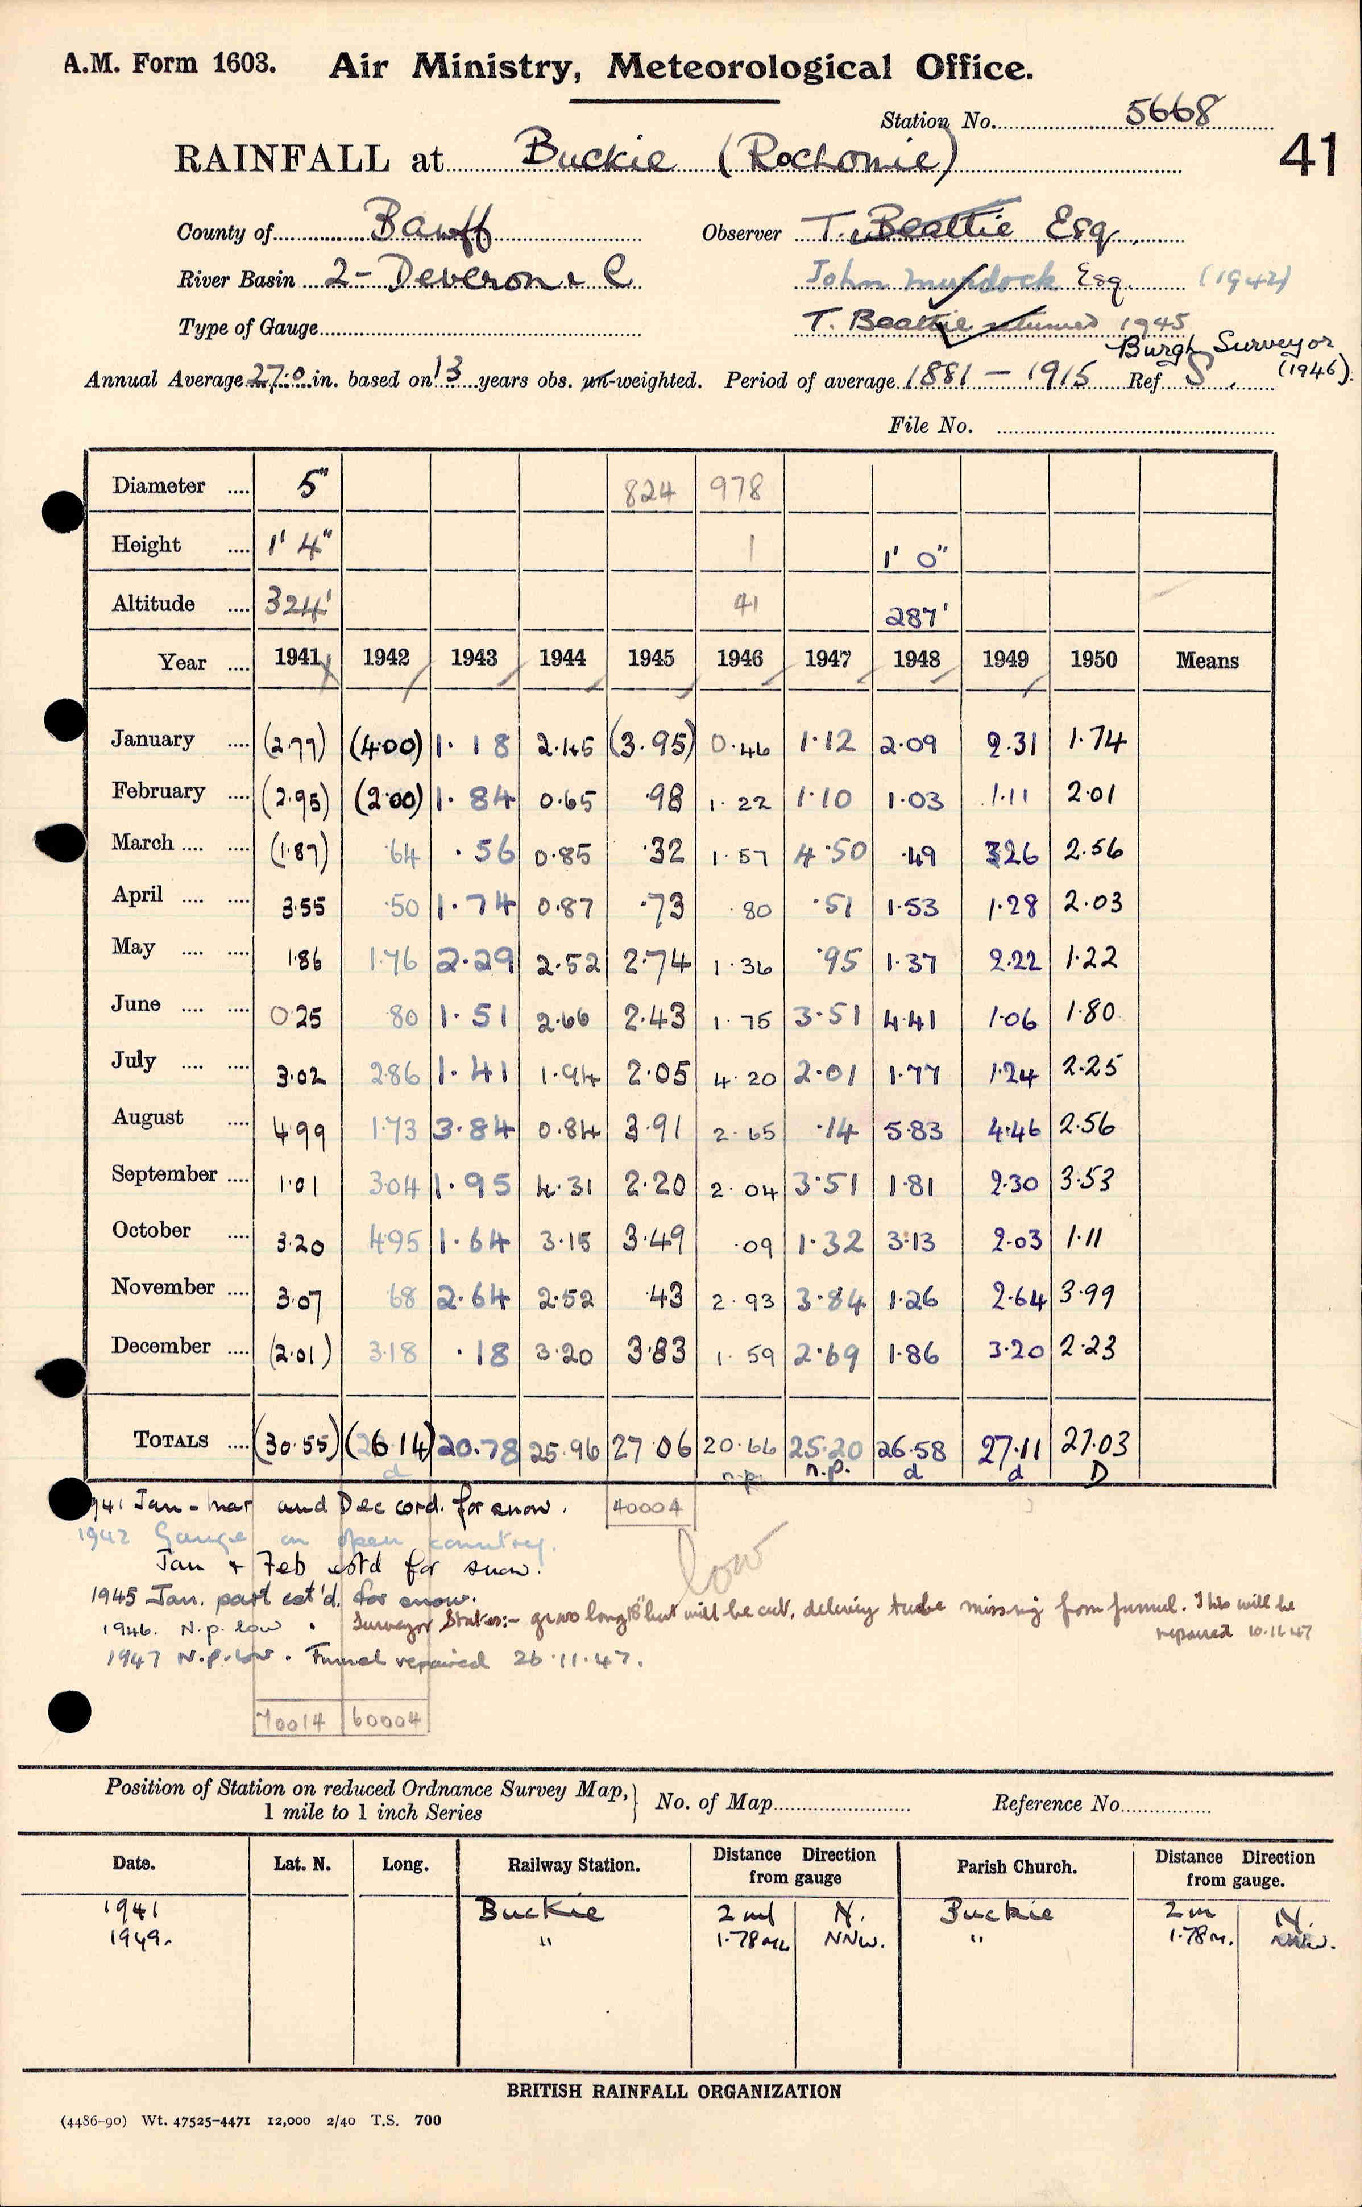 A.M. Form 1603. Air Ministry, Meteorological Office.
Station No. 5668
41
RAINFALL at Buckie (Rochomie)
County of Banff Observer T. Beattie Esq
River Basin 2 - Deveron &c John Murdock Esq (1942)
Type of Gauge T. Beattie returned 1945
Burgh Surveyor (1946).
Annual Average 27.0 in. based on 13 years obs. un-weighted. Period of average 1881 - 1915 Ref. S.
File No.
Diameter .... 5" 824 978
Height .... 1' 4" 1 1' 0"
Altitude .... 324' 41 287'
Year .... 1941 1942 1943 1944 1945 1946 1947 1948 1949 1950 Means
January .... (2.77) (4.00) 1.18 2.45 (3.95) 0.46 1.12 2.09 2.31 1.74
February .... (2.95) (2.00) 1.84 0.65 .98 1.22 1.10 1.03 1.11 2.01
March .... .... (1.87) .64 .56 0.85 .32 1.57 4.50 .49 3.26 2.56
April .... .... 3.55 .50 1.74 0.87 .73 .80 .51 1.53 1.28 2.03
May .... .... 1.86 1.76 2.29 2.52 2.74 1.36 .95 1.37 2.22 1.22
June .... .... 0.25 .80 1.51 2.66 2.43 1.75 3.51 4.41 1.06 1.80
July .... .... 3.02 2.86 1.41 1.94 2.05 4.20 2.01 1.77 1.24 2.25
August .... 4.99 1.73 3.84 0.84 3.91 2.65 .14 5.83 4.46 2.56
September .... 1.01 3.04 1.95 4.31 2.20 2.04 3.51 1.81 2.30 3.53
October .... 3.20 4.95 1.64 3.15 3.49 .09 1.32 3.13 2.03 1.11
November .... 3.07 .68 2.64 2.52 .43 2.93 3.84 1.26 2.64 3.99
December .... (2.01) 3.18 .18 3.20 3.83 1.59 2.69 1.86 3.20 2.23
TOTALS .... (30.55) (26.14) 20.78 25.96 27.06 20.66 25.20 26.58 27.11 27.03
d n.p. n.p. d d D
1941 Jan - Mar and Dec cord. for snow. 40004
1942 Gauge in open country.
Jan & Feb est'd for snow. low
1945 Jan. part est'd. for snow.
1946. N.p. low. Surveyor States:- grass long but will be cut, delivery tube missing from funnel. This will be
repaired 10.11.47
1947 N.p. low. Funnel repaired 26.11.47.
70014 60004
Position of Station on reduced Ordnance Survey Map, } No. of Map Reference No.
1 mile to 1 inch Series
Date. Lat. N. Long. Railway Station. Distance Direction from gauge Parish Church. Distance Direction from gauge.
1941 Buckie 2 ml N. Buckie 2 m N.
1949. " 1.78 ml NNW. " 1.78 m. NNW.
BRITISH RAINFALL ORGANIZATION
(4486-90) Wt. 47525-4471 12,000 2/40 T.S. 700